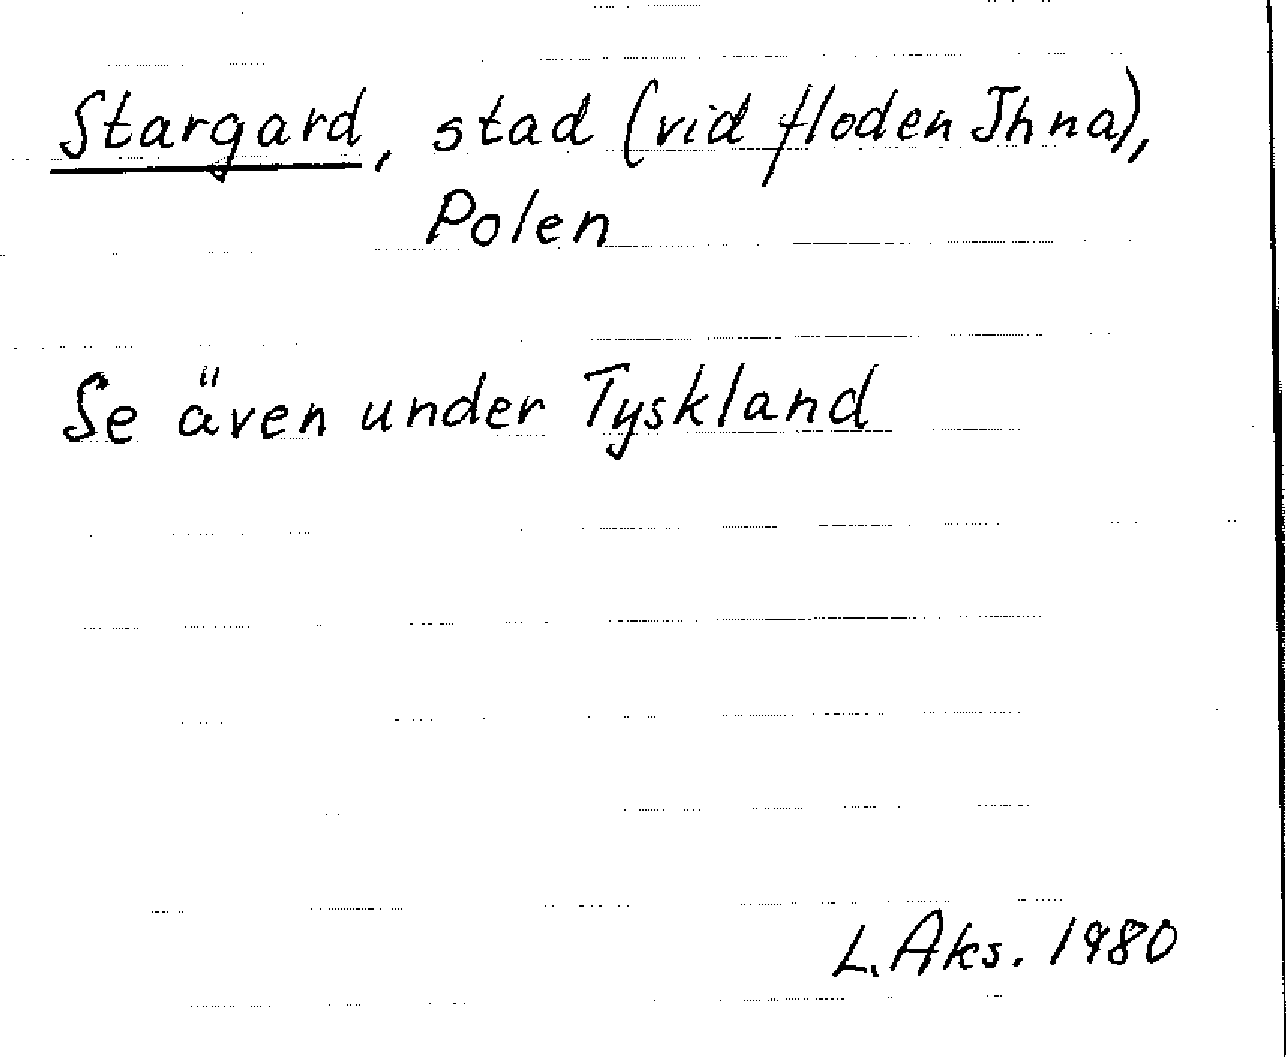 Stargard, stad (vid floden Ihna),
Polen
Se även under Tyskland
L. Aks. 1980